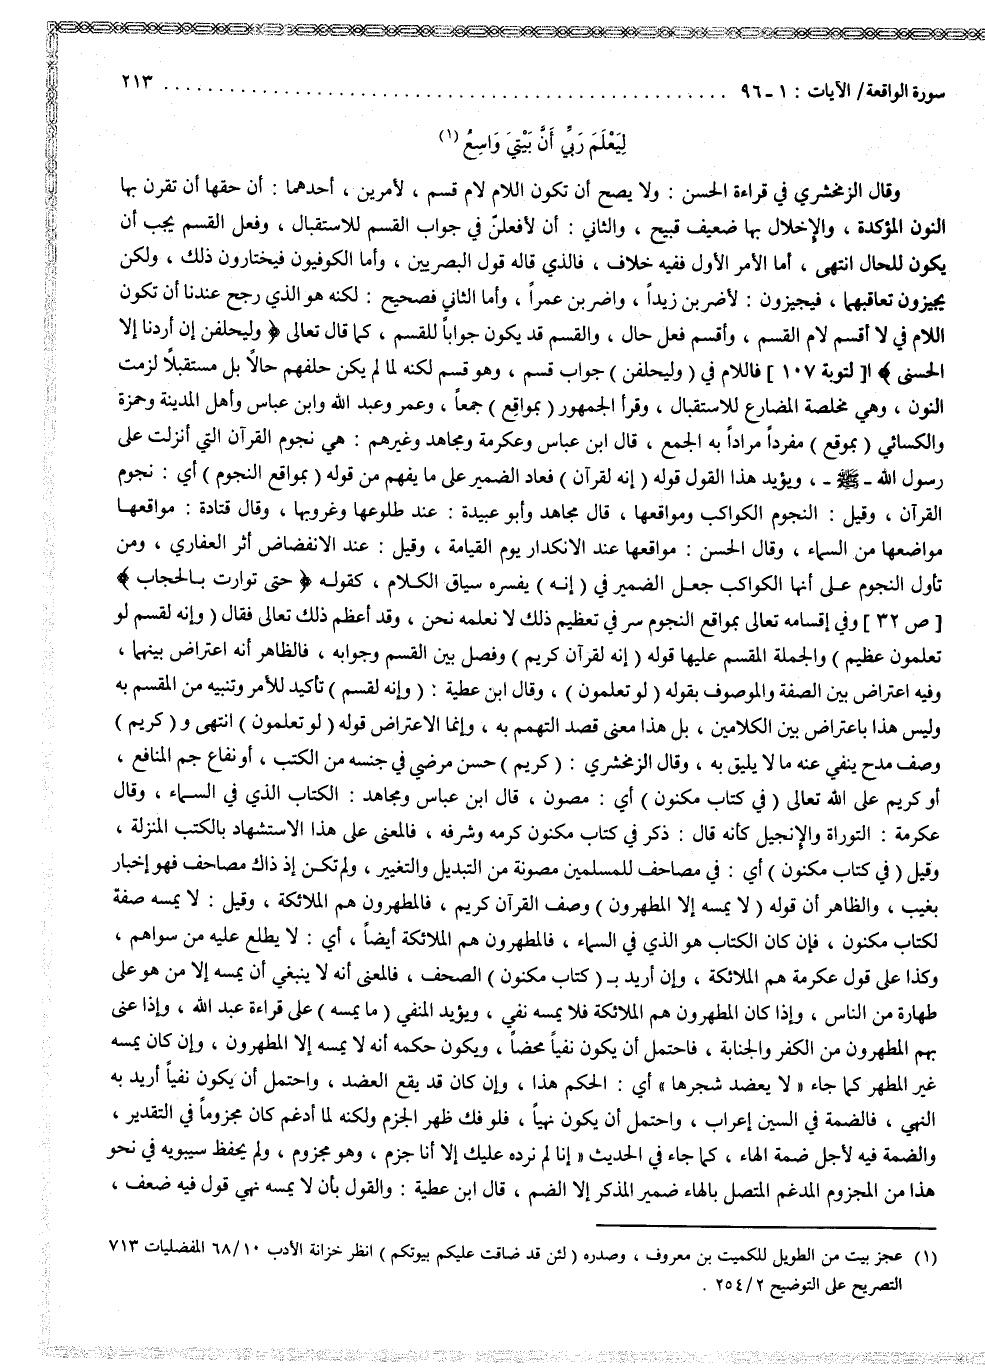 سورة الواقعة/ الآيات : ١ ـ ٩٦ ........................................................ ٢١٣
لِيَعْلَمَ رَبِّي أَنَّ بَيْتِيَ وَاسِعُ (١)
وقال الزمخشري في قراءة الحسن : ولا يصح أن تكون اللام لام قسم ، لأمرين ، أحدهما : أن حقها أن تقرن بها
النون المؤكدة ، والإخلال بها ضعيف قبيح ، والثاني : أن لأفعلنّ في جواب القسم للاستقبال ، وفعل القسم يجب أن
يكون للحال انتهى ، أما الأمر الأول ففيه خلاف ، فالذي قاله قول البصريين ، وأما الكوفيون فيختارون ذلك ، ولكن
يجيزون تعاقبهما ، فيجيزون : لأضربن زيداً ، واضربن عمراً ، وأما الثاني فصحيح : لكنه هو الذي رجح عندنا أن تكون
اللام في لا أقسم لام القسم ، وأقسم فعل حال ، والقسم قد يكون جواباً للقسم ، كما قال تعالى ﴿ وليحلفن إن أردنا إلا
الحسنى ﴾ ا[ لتوبة ١٠٧ ] فاللام في ( وليحلفن ) جواب قسم ، وهو قسم لكنه لما لم يكن حلفهم حالاً بل مستقبلاً لزمت
النون ، وهي مخلصة المضارع للاستقبال ، وقرأ الجمهور ( بمواقع ) جمعاً ، وعمر وعبد الله وابن عباس وأهل المدينة وحمزة
والكسائي ( بموقع ) مفرداً مراداً به الجمع ، قال ابن عباس وعكرمة ومجاهد وغيرهم : هي نجوم القرآن التي أنزلت على
رسول الله ـ ﷺ ـ ، ويؤيد هذا القول قوله ( إنه لقرآن ) فعاد الضمير على ما يفهم من قوله ( بمواقع النجوم ) أي : نجوم
القرآن ، وقيل : النجوم الكواكب ومواقعها ، قال مجاهد وأبو عبيدة : عند طلوعها وغروبها ، وقال قتادة : مواقعهـا
مواضعها من السماء ، وقال الحسن : مواقعها عند الانكدار يوم القيامة ، وقيل : عند الانفضاض أثر العفاري ، ومن
تأول النجوم عـلى أنها الكواكب جعـل الضمير في ( إنـه ) يفسره سياق الكـلام ، كقولـه ﴿ حتى توارت بـالحجاب ﴾
[ ص ٣٢ ] وفي إقسامه تعالى بمواقع النجوم سر في تعظيم ذلك لا نعلمه نحن ، وقد أعظم ذلك تعالى فقال ( وإنه لقسم لو
تعلمون عظيم ) والجملة المقسم عليها قوله ( إنه لقرآن كريم ) وفصل بين القسم وجوابه ، فالظاهر أنه اعتراض بينهما ،
وفيه اعتراض بين الصفة والموصوف بقوله ( لو تعلمون ) ، وقال ابن عطية : ( وإنه لقسم ) تأكيد للأمر وتنبيه من المقسم به
وليس هذا باعتراض بين الكلامين ، بل هذا معنى قصد التهمم به ، وإنما الاعتراض قوله ( لو تعلمون ) انتهى و ( كريم )
وصف مدح ينفي عنه ما لا يليق به ، وقال الزمخشري : ( كريم ) حسن مرضي في جنسه من الكتب ، أو نفاع جم المنافع ،
أو كريم على الله تعالى ( في كتاب مكنون ) أي : مصون ، قال ابن عباس ومجاهد : الكتاب الذي في السـماء ، وقال
عكرمة : التوراة والإنجيل كأنه قال : ذكر في كتاب مكنون كرمه وشرفه ، فالمعنى على هذا الاستشهاد بالكتب المنزلة ،
وقيل ( في كتاب مكنون ) أي : في مصاحف للمسلمين مصونة من التبديل والتغيير ، ولم تكن إذ ذاك مصاحف فهو إخبار
بغيب ، والظاهر أن قوله ( لا يمسه إلا المطهرون ) وصف القرآن كريم ، فالمطهرون هم الملائكة ، وقيل : لا يمسه صفة
لكتاب مكنون ، فإن كان الكتاب هو الذي في السماء ، فالمطهرون هم الملائكة أيضاً ، أي : لا يطلع عليه من سواهم ،
وكذا على قول عكرمة هم الملائكة ، وإن أريد بـ ( كتاب مكنون ) الصحف ، فالمعنى أنه لا ينبغي أن يمسه إلا من هو على
طهارة من الناس ، وإذا كان المطهرون هم الملائكة فلا يمسه نفي ، ويؤيد المنفي ( ما يمسه ) على قراءة عبد الله ، وإذا عنى
بهم المطهرون من الكفر والجنابة ، فاحتمل أن يكون نفياً محضاً ، ويكون حكمه أنه لا يمسه إلا المطهرون ، وإن كان يمسه
غير المطهر كما جاء « لا يعضد شجرها » أي : الحكم هذا ، وإن كان قد يقع العضد ، واحتمل أن يكون نفياً أريد به
النهي ، فالضمة في السين إعراب ، واحتمل أن يكون نهياً ، فلو فك ظهر الجزم ولكنه لما أدغم كان مجزوماً في التقدير ،
والضمة فيه لأجل ضمة الهاء ، كما جاء في الحديث « إنا لم نرده عليك إلا أنا جزم ، وهو مجزوم ، ولم يحفظ سيبويه في نحو
هذا من المجزوم المدغم المتصل بالهاء ضمير المذكر إلا الضم ، قال ابن عطية : والقول بأن لا يمسه نهي قول فيه ضعف ،
(١) عجز بيت من الطويل للكميت بن معروف ، وصدره ( لئن قد ضاقت عليكم بيوتكم ) انظر خزانة الأدب ٦٨/١٠ المفضليات ٧١٣
التصريح على التوضيح ٢٥٤/٢ .